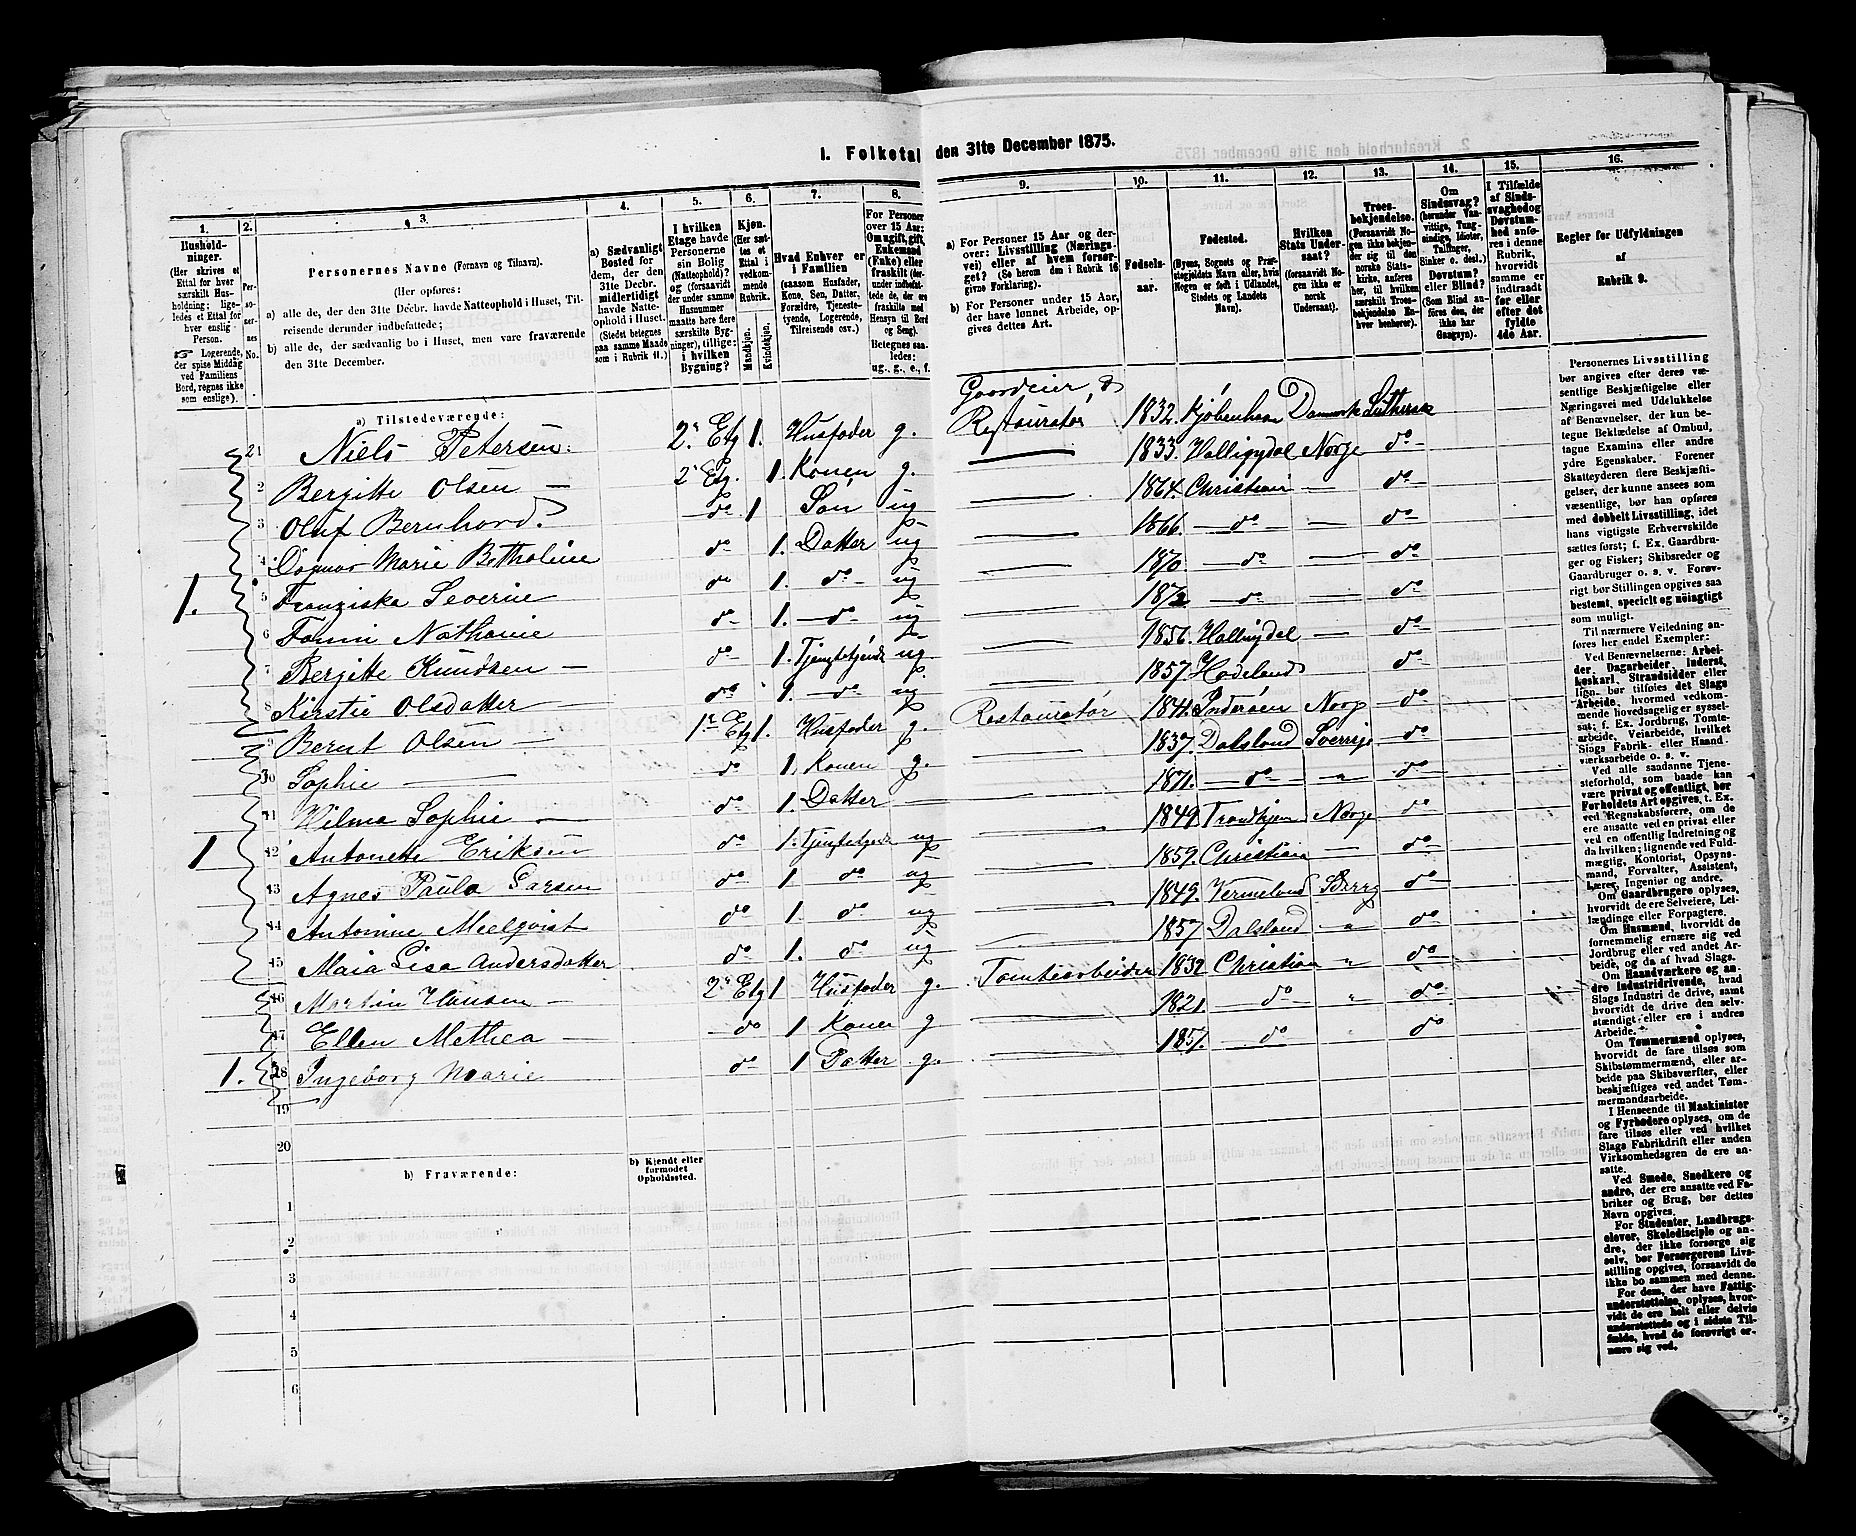 1. Folketal den 31te December 1875.
1. Husholdninger. (Her skrives et Ettal for hver særskilt Husholdning; ligeledes et Ettal for hver enslig Person. ☞ Logerende, der spise Middag ved Familiens Bord, regnes ikke som enslige).
2. Personernes No.
3. Personernes Navne (Fornavn og Tilnavn).
(Her opføres:
a) alle de, der den 31te Decbr. havde Natteophold i Huset, Tilreisende derunder indbefattede;
b) alle de, der sædvanlig bo i Huset, men vare fraværende den 31te December.
4. a) Sædvanligt Bosted for dem, der den 31te Decbr. midlertidigt havde Natteophold i Huset. (Stedet betegnes paa samme Maade som i Rubrik 11.)
5. I hvilken Etage havde Personerne sin Bolig (Natteophold)? og (forsaavidt der under samme Husnummer maatte høre flere særskilte Bygninger), tillige: i hvilken Bygning?
6. Kjøn. (Her sættes et Ettal i vedkommende Rubrik. Mandkjøn. Kvindekjøn.
7. Hvad Enhver er i Familien (saasom Husfader, Kone, Søn, Datter, Forældre, Tjenestetyende, Logerende, Tilreisende osv.)
8. For Personer over 15 Aar: Om ugift, gift, Enkemand (Enke) eller fraskilt Betegnes saaledes: ug., g., e., f.
9. a) For Personer 15 Aar og derover: Livsstilling (Næringsvei) eller af hvem forsørget? (Se herom den i Rubrik 16 givne Forklaring).
b) For Personer under 15 Aar, der have lønnet Arbeide, opgives dettes Art.
10. Fødselsaar.
11. Fødested. (Byens, Sognets og Præstegjeldets Navn eller, hvis Nogen er født i Udlandet, Stedets og Landets Navn).
12. Hvilken Stats Undersaat? (forsaavidt Nogen ikke er norsk Undersaat).
13. Troesbekjendelse. (Forsaavidt Nogen ikke bekjender sig til den norske Statskirke, anføres her, til hvilken særskilt Troesbekjendelse Enhver henhører).
14. Om Sindssvag? (herunder Vanvittige, Tungsindige, Idioter, Tullinger, Sinker o. desl.) Døvstum? eller Blind? (Som Blind anføres den, der ikke har Gangsyn).
15. I Tilfælde af Sindssvaghed og Døvstumhed anføres i denne Rubrik, hvorvidt samme er indtraadt før eller efter det fyldte 4de Aar.
16. Regler for Udfyldningen af Rubrik 9.
a) Tilstedeværende:
Gaardeier &
Niels Petersen 2. Etg 1. Husfader g. Restauratør 1832. Kjøbenhavn Danmark Luthersk
2 Bergitte Olsen — 2 Etg. 1. Konen g. — 1833. Hallingdal Norge do
3 Oluf Bernhard. do 1 Søn ug — 1864. Christiani — do
4 Dagmar Marie Betholine do 1. Datter ug — 1866. do — do
1. 5 Franziska Severine do 1. do ug — 1870 do — do
6 Fanni Nathanie do 1. do ug — 1872 do — do
7 Bergitte Knudsen — do 1. Tjenstetjende ug — 1856. Hallingdal — do
8 Kirstie Olsdatter do 1. do ug — 1857. Hadeland do
9 Bernt Olsen — 1r Etg 1. Husfader g. Restauratør 1841. Inderøen Norge do
10 Sophie — do 1. Konen g. — 1837. Dalsland Sverrige do
11 Wilma Sophie — do 1. Datter — 1871. do " do
1 12 Antonette Eriksen do 1. Tjenstetjende ug — 1849. Trondhjem Norge do
13 Agnes Paula Larsen do 1 do ug — 1859. Christiani — do
14 Antonine Meelqvist do 1. do ug — 1849. Vermeland Sverrig do
15 Maia Lisa Andersdatter do 1. do ug — 1857 Dalsland " do
16 Martin Hansen — 2r Etg 1 Husfader g. Tomtearbeider 1832. Christiani " do
17 Ellen Mathea — do 1 Konen g — 1821. do " do
1. 18 Ingeborg Marie do 1 Datter g. — 1857. do " do
19
20
b) Fraværende: b) Kjendt eller formodet Opholdssted.
1
2
3
4
5
6
Personernes Livsstilling bør angives efter deres væsentlige Beskjæftigelse eller Næringsvei med Udelukkelse af Benævnelser, der kun betegne Beklædelse af Ombud, tagne Examina eller andre ydre Egenskaber. Forener Skatteyderen flere Beskjæftigelser, der kunne ansees som væsentlige, bør han opføres med dobbelt Livsstilling, idet hans vigtigste Erhvervskilde sættes først; f. Ex. Gaardbruger og Fisker; Skibsreder og Gaardbruger o. s. v. Forøvrigt bør Stillingen opgives saa bestemt, specielt og nøiagtigt som muligt.
Til nærmere Veiledning anføres her endel Exempler:
Ved Benævnelserne: Arbeider, Dagarbeider, Inderst, Løskarl, Strandsidder eller lign. bør tilføies det Slags Arbeide, hvormed vedkommende hovedsagelig er sysselsat; f. Ex. Jordbrug, Tomtearbeide, Veiarbeide, hvilket Slags Fabrik- eller Haandværksarbeide o. s. v.
Ved alle saadanne Tjenesteforhold, som baade kan være privat og offentligt, bør Forholdets Art opgives, t. Ex. ved Regnskabsførere, om de ere ansatte ved en privat eller ved en offentlig Indretning og da hvilken; lignende ved Fuldmægtig, Kontorist, Opsynsmand, Forvalter, Assistent, Lærer, Ingeniør og andre.
Om Gaardbrugere oplyses, hvorvidt de ere Selveiere, Leilændinge eller Forpagtere.
Om Husmænd, hvorvidt de fornemmelig ernære sig ved Jordbrug eller ved andet Arbeide, og da af hvad Slags.
Om Haandværkere og andre Industridrivende, hvad Slags Industri de drive, samt hvorvidt de drive den selvstændigt eller ere i andres Arbeide.
Om Tømmermænd oplyses, hvorvidt de fare tilsøs som Skibstømmermænd, eller arbeide paa Skibsværfter, eller beskjæftiges ved andet Tømmermandsarbeide.
I Henseende til Maskinister og Fyrbødere oplyses, om de fare tilsøs eller ved hvilket Slags Fabrikdrift eller anden Virksomhedsgren de ere ansatte.
Ved Smede, Snedkere og andre, der ere ansatte ved Fabriker og Brug, bør dettes Navn opgives.
For Studenter, Landbrugselever, Skoledisciple og andre, der ikke forsørge sig selv, bør Forsørgerens Livsstilling opgives, forsaavidt de ikke bo sammen med denne.
For dem, der have Fattigunderstøttelse, oplyses, hvorvidt de ere helt eller delvis understøttede og i sidste Tilfælde, hvad de forøvrigt ernære sig ved.